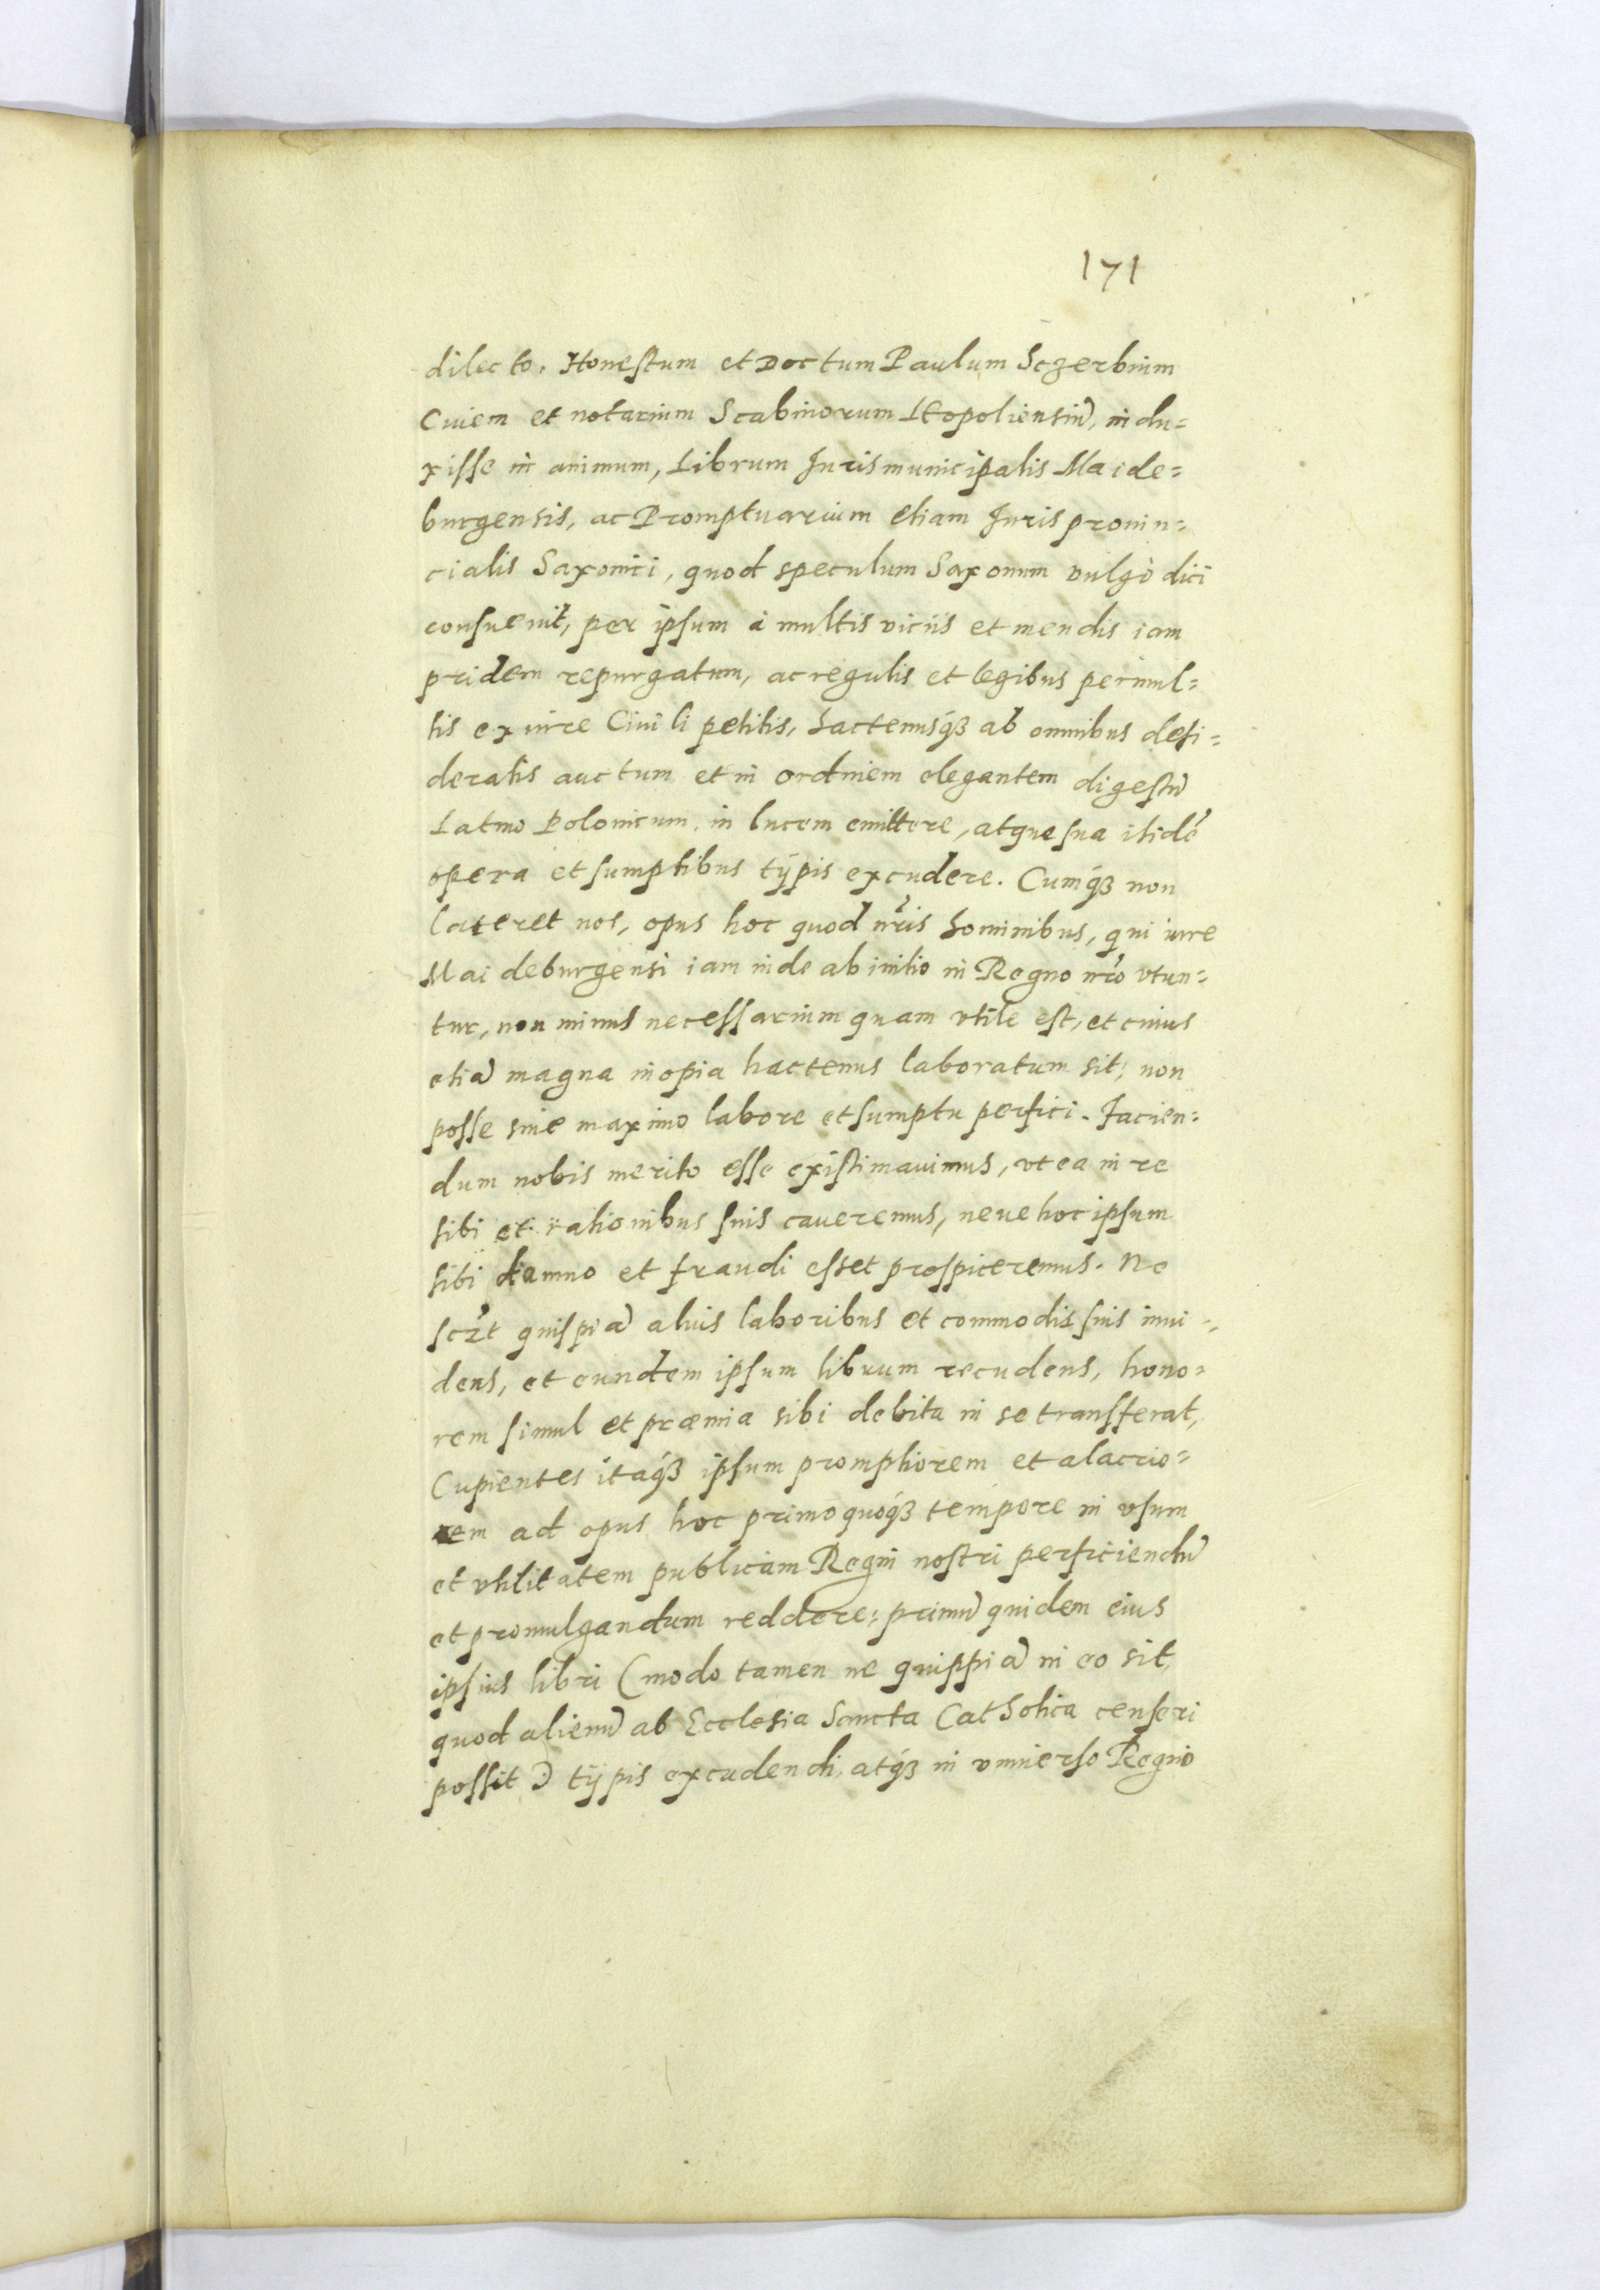 171
dilecto, Honestum et Doctum Paulum Sczerbium
Ciuem et notarium Scabinorum Leopoliensiũ, indu=
xisse in animum, Librum Juris municipalis Maide=
burgensis, ac Promptuarium etiam Juris prouin=
cialis Saxonici, quod speculum Saxonum vulgò dici
consueuit, per ipsum à multis viciis et mendis iam
pridem repurgatum, ac regulis et legibus permul=
tis ex iure Ciuili petitis, hactenusq́ꝫ ab omnibus desi=
deratis auctum et in ordinem elegantem digestũ
Latino Polonicum, in lucem emittere, atque sua itidẽ
opera et sumptibus typis excudere. Cumq́ꝫ non
lateret nos, opus hoc quod nr̃is hominibus, qui iure
Maideburgensi iam inde ab initio in Regno nr̃o vtun=
tur, non minus necessarium quam vtile est, et cuius
etiã magna inopia hactenus laboratum sit, non
posse sine maximo labore et sumptu perfici. Facien=
dum nobis merito esse existimauimus, vt ea in re
sibi et rationibus suis caueremus, neue hoc ipsum
sibi damno et fraudi esset prospiceremus. Ne
scz̃t quispiã alius laboribus et commodis suis inui=
dens, et eundem ipsum librum recudens, hono=
rem simul et præmia sibi debita in se transferat,
Cupientes itaq́ꝫ ipsum promptiorem et alacrio=
rem ad opus hoc primo quoq́ꝫ tempore in vsum
et vtilitatem publicam Regni nostri perficiendũ
et promulgandum reddere: primũ quidem eius
ipsius libri (modo tamen ne quippiã in eo sit,
quod alienũ ab Ecclesia Sancta Catholica censeri
possit) typis excudendi, atq́ꝫ in vniuerso Regno